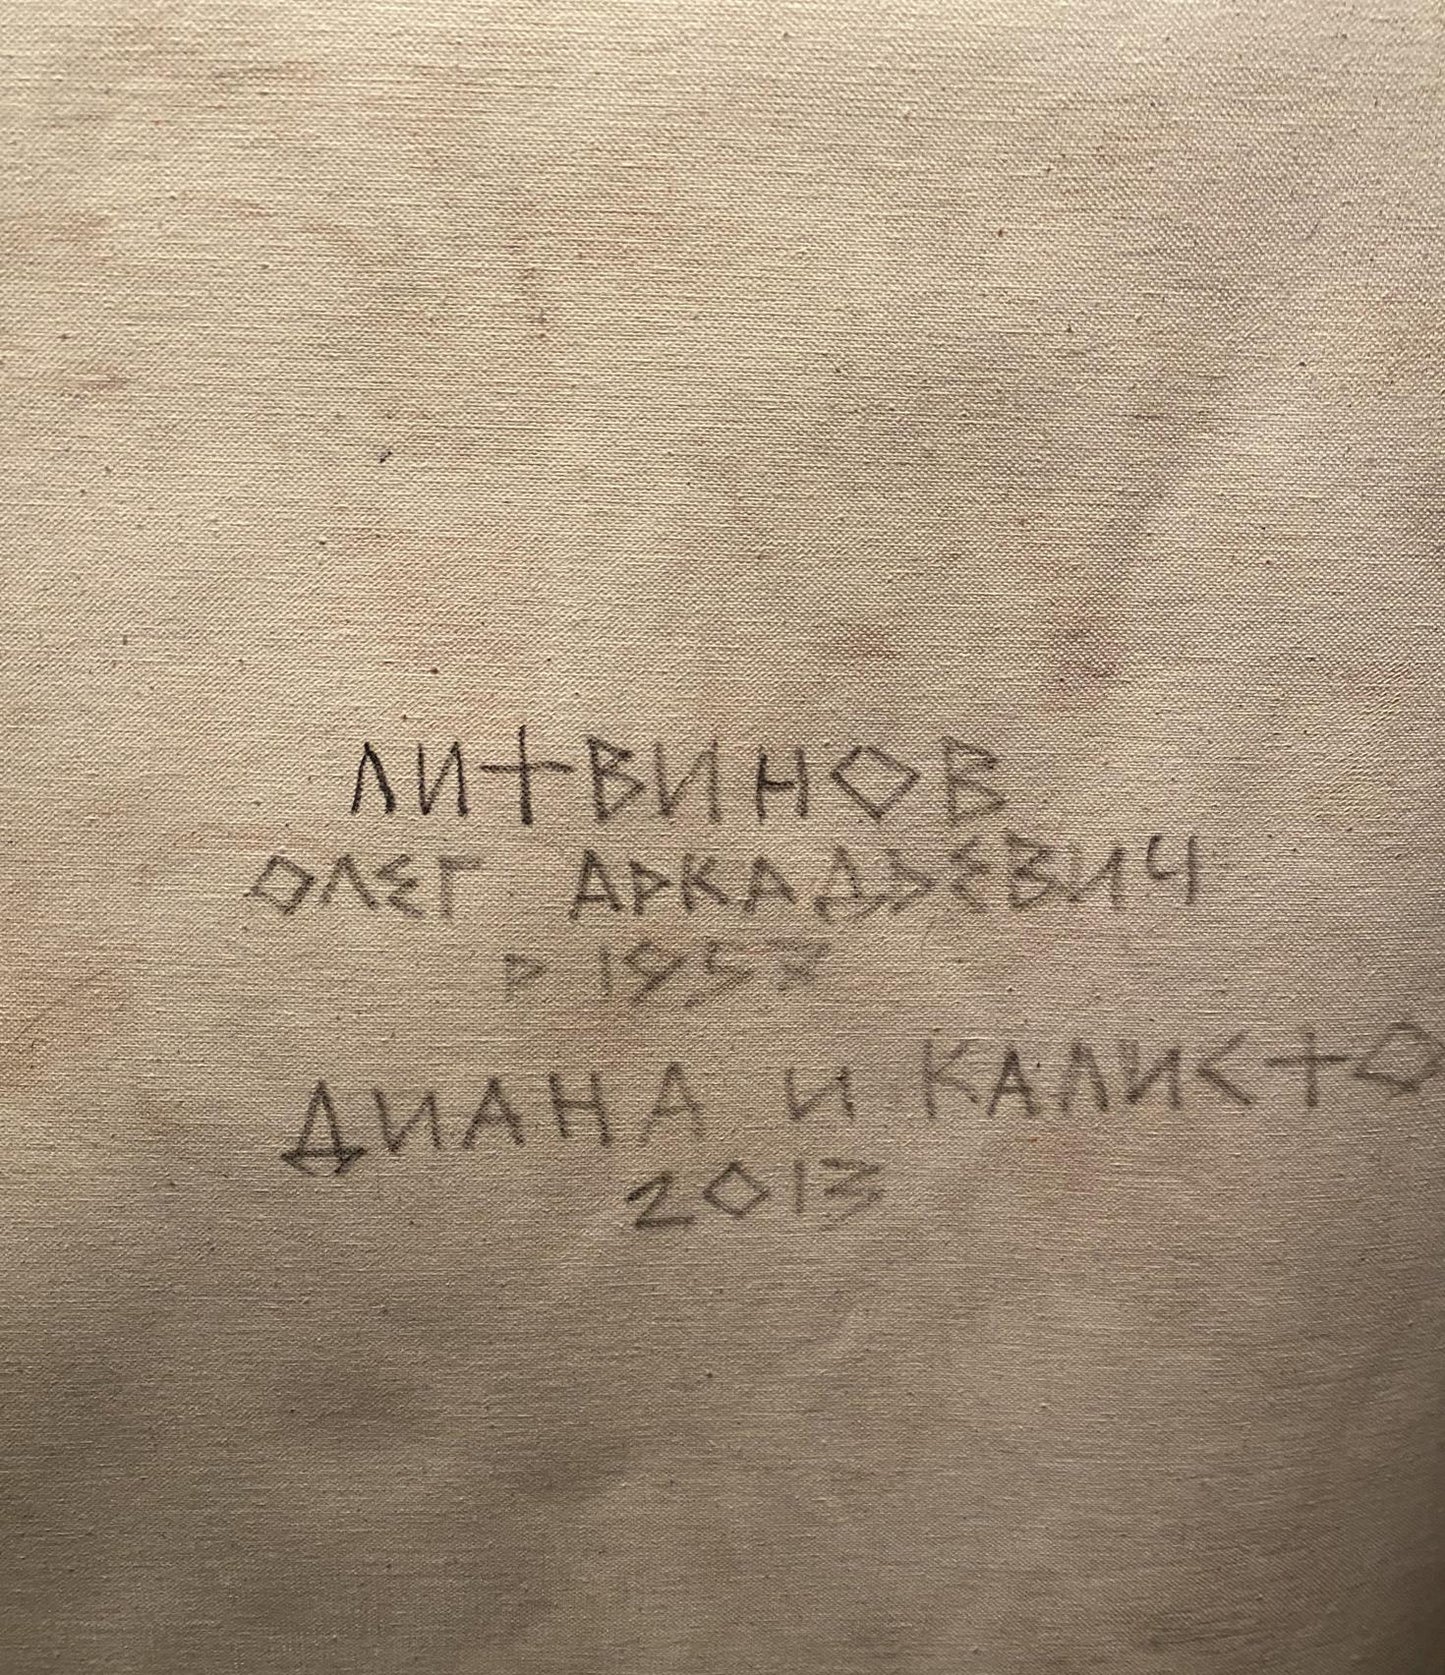 ЛИТВИНОВ
ОЛЕГ АРКАДЬЕВИЧ
Р 1957
ДИАНА И КАЛИСТО
2013